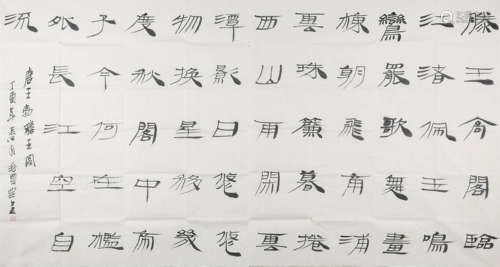 滕王高閣臨
江渚佩玉鳴
鸞罷歌舞畫
棟朝飛南浦
雲珠簾暮捲
西山雨閒雲
潭影日悠悠
物換星移幾
度秋閣中帝
子今何在檻
外長江空自
流
唐王勃滕王閣
丁亥年